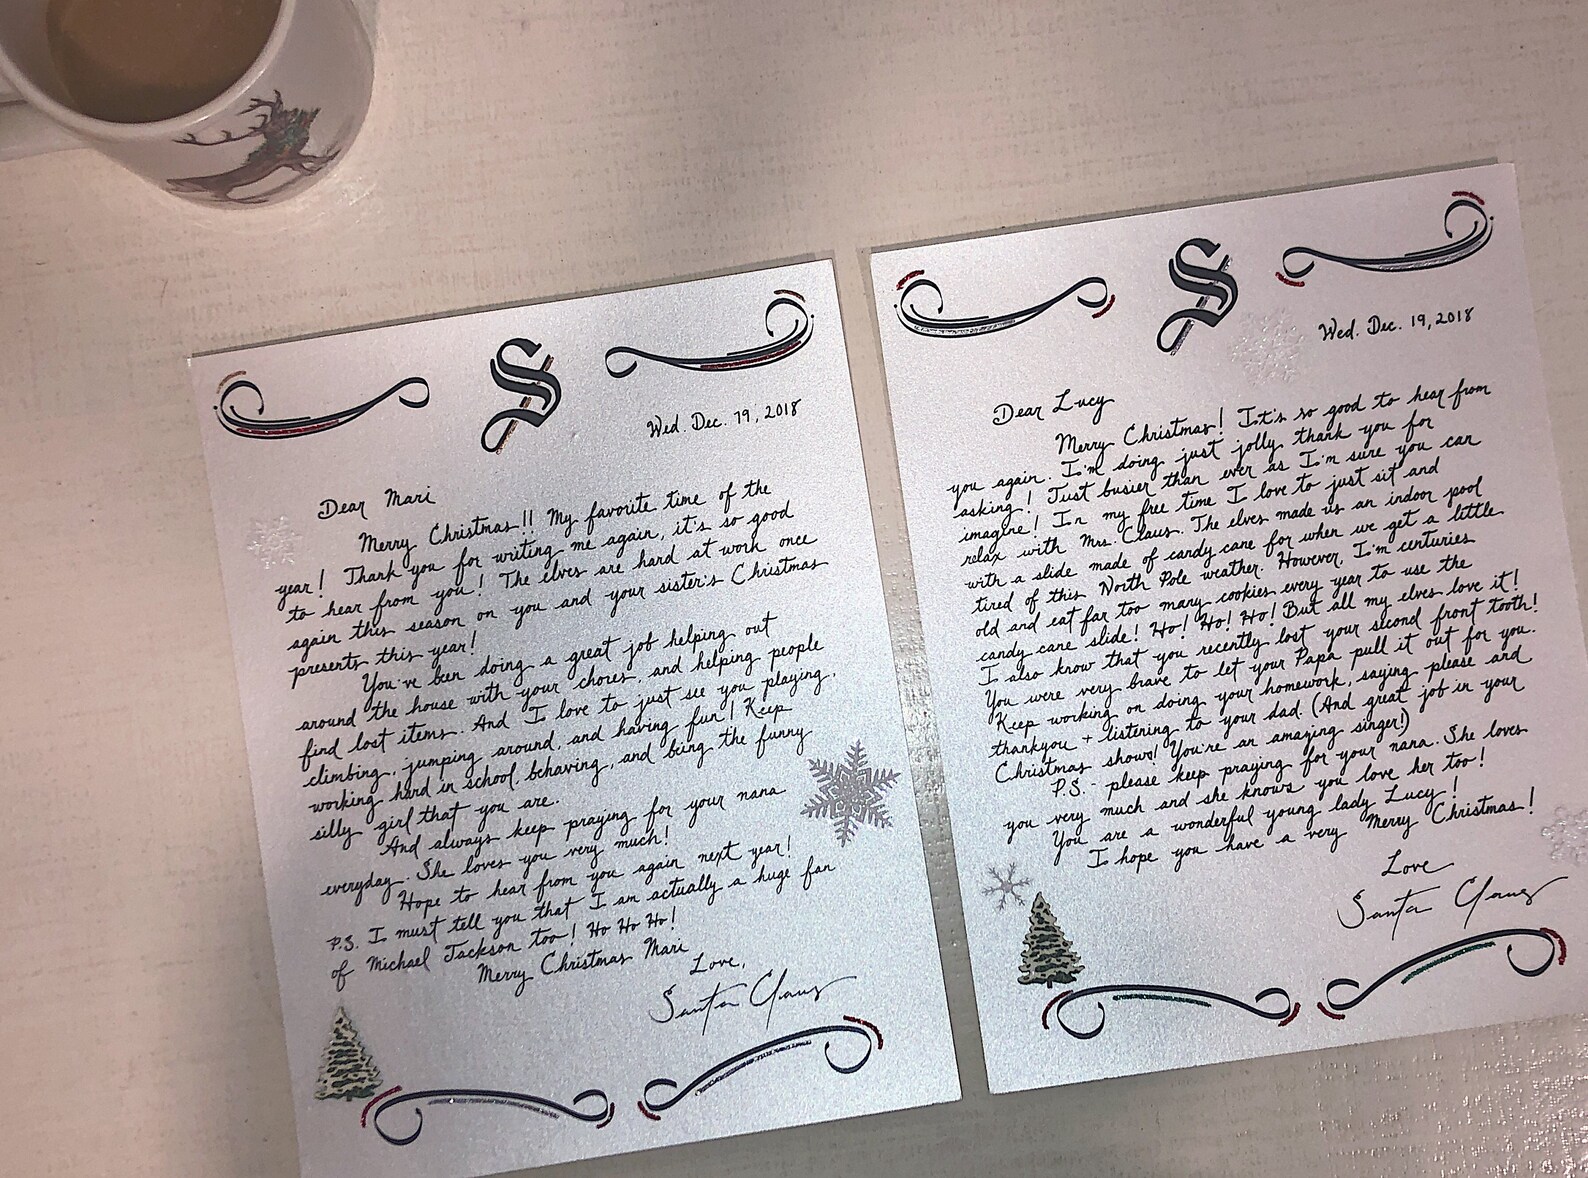 S
Wed. Dec. 19, 2018
Dear Mari
Merry Christmas!! My favorite time of the
year! Thank you for writing me again, it's so good
to hear from you! The elves are hard at work once
again this season on you and your sister's Christmas
presents this year!
You've been doing a great job helping out
around the house with your chores, and helping people
find lost items. And I love to just see you playing,
climbing, jumping around, and having fun! Keep
working hard in school, behaving, and being the funny
silly girl that you are.
And always keep praying for your nana
everyday. She loves you very much!
Hope to hear from you again next year!
P.S. I must tell you that I am actually a huge fan
of Michael Jackson too! Ho Ho Ho!
Merry Christmas Mari
Love,
Santa Claus
S
Wed. Dec. 19, 2018
Dear Lucy
Merry Christmas! It's so good to hear from
you again. I'm doing just jolly thank you for
asking! Just busier than ever as I'm sure you can
imagine! In my free time I love to just sit and
relax with Mrs. Claus. The elves made us an indoor pool
with a slide made of candy cane for when we get a little
tired of this North Pole weather. However, I'm centuries
old and eat far too many cookies every year to use the
candy cane slide! Ho! Ho! Ho! But all my elves love it!
I also know that you recently lost your second front tooth!
You were very brave to let your Papa pull it out for you.
Keep working on doing your homework, saying please and
thankyou + listening to your dad. (And great job in your
Christmas show! You're an amazing singer!)
P.S. - please keep praying for your nana. She loves
you very much and she knows you love her too!
You are a wonderful young lady Lucy!
I hope you have a very Merry Christmas!
Love
Santa Claus